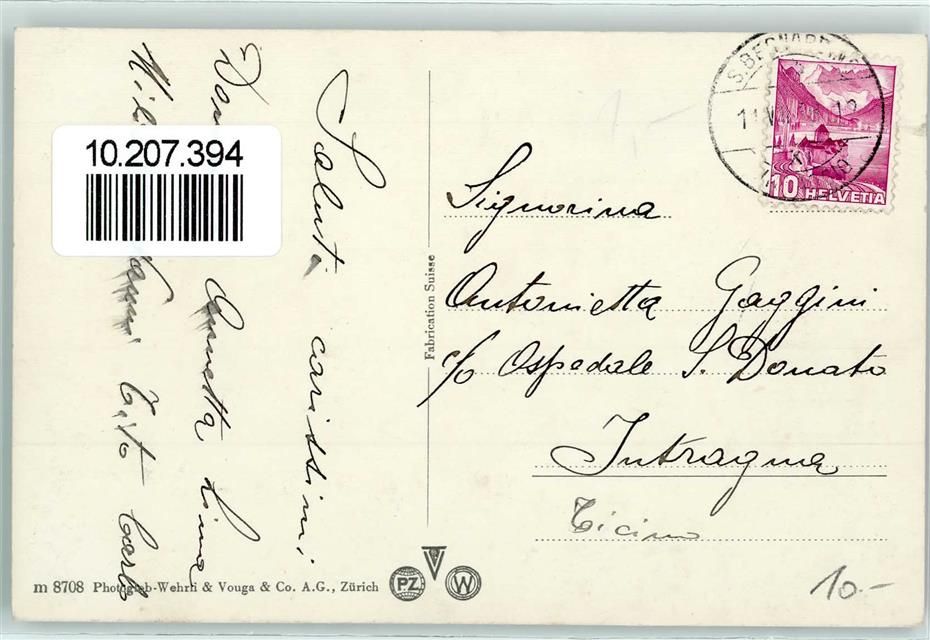 10.207.394
Saluti carissimi.
Annetta Lina
Tito Carlo
Fabrication Suisse
S. BERNARDINO
10 HELVETIA
Signorina
Antonietta Gaggini
c/o Ospedale S. Donato
Intragna
Ticino
10.-
1.-
m 8708 Photoglob-Wehrli & Vouga & Co. A.G., Zürich
PZ
W